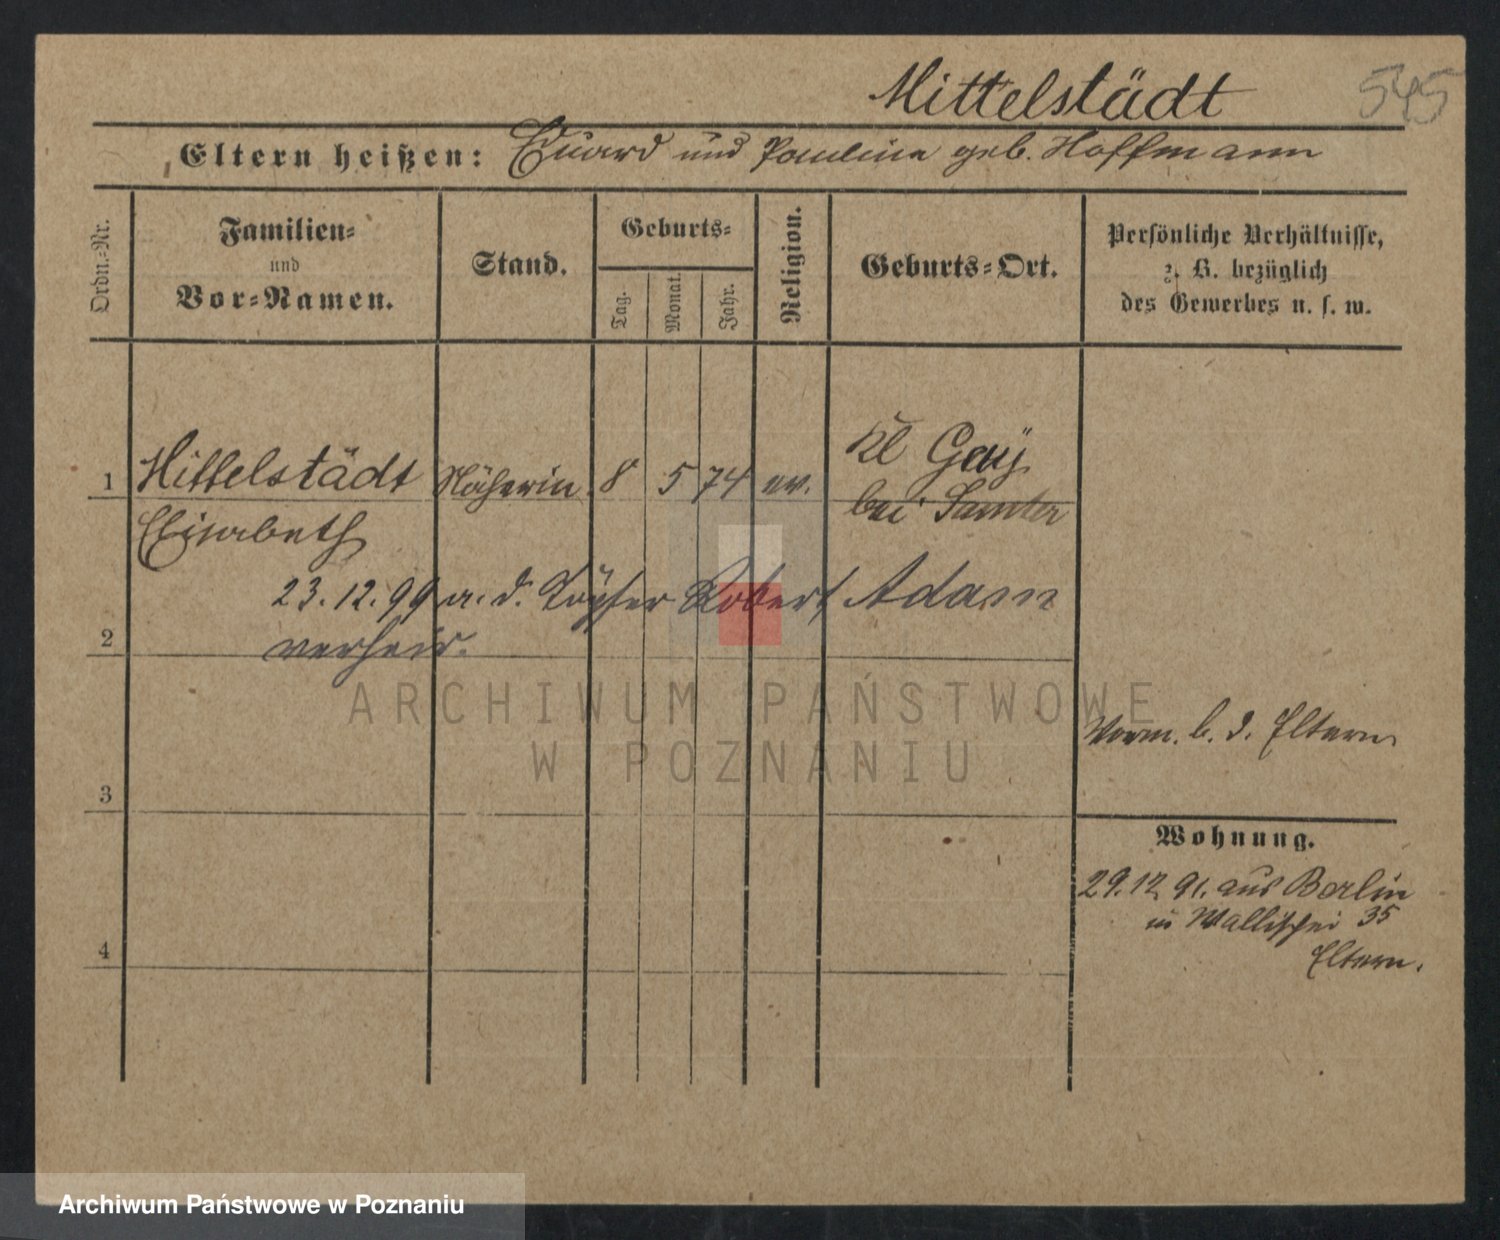 Mittelstädt 545
Eltern heißen: Eduard und Pauline geb. Hoffmann
Ordn.-Nr.
Familien-
und
Vor-Namen.
Stand.
Geburts-
Tag.
Monat.
Jahr.
Religion.
Geburts-Ort.
Persönliche Verhältnisse,
z. B. bezüglich
des Gewerbes u. s. w.
1 Mittelstädt Näherin 8 5 74 ev. Kl Gay
Elisabeth bei Samter
23.12.99 m. d. Töpfer Robert Adam
2 verheir.
ARCHIWUM PAŃSTWOWE
W POZNANIU
Worm. b. d. Eltern
3
Wohnung.
29.12.91. aus Berlin
in Wallischei 35
Eltern.
4
Archiwum Państwowe w Poznaniu